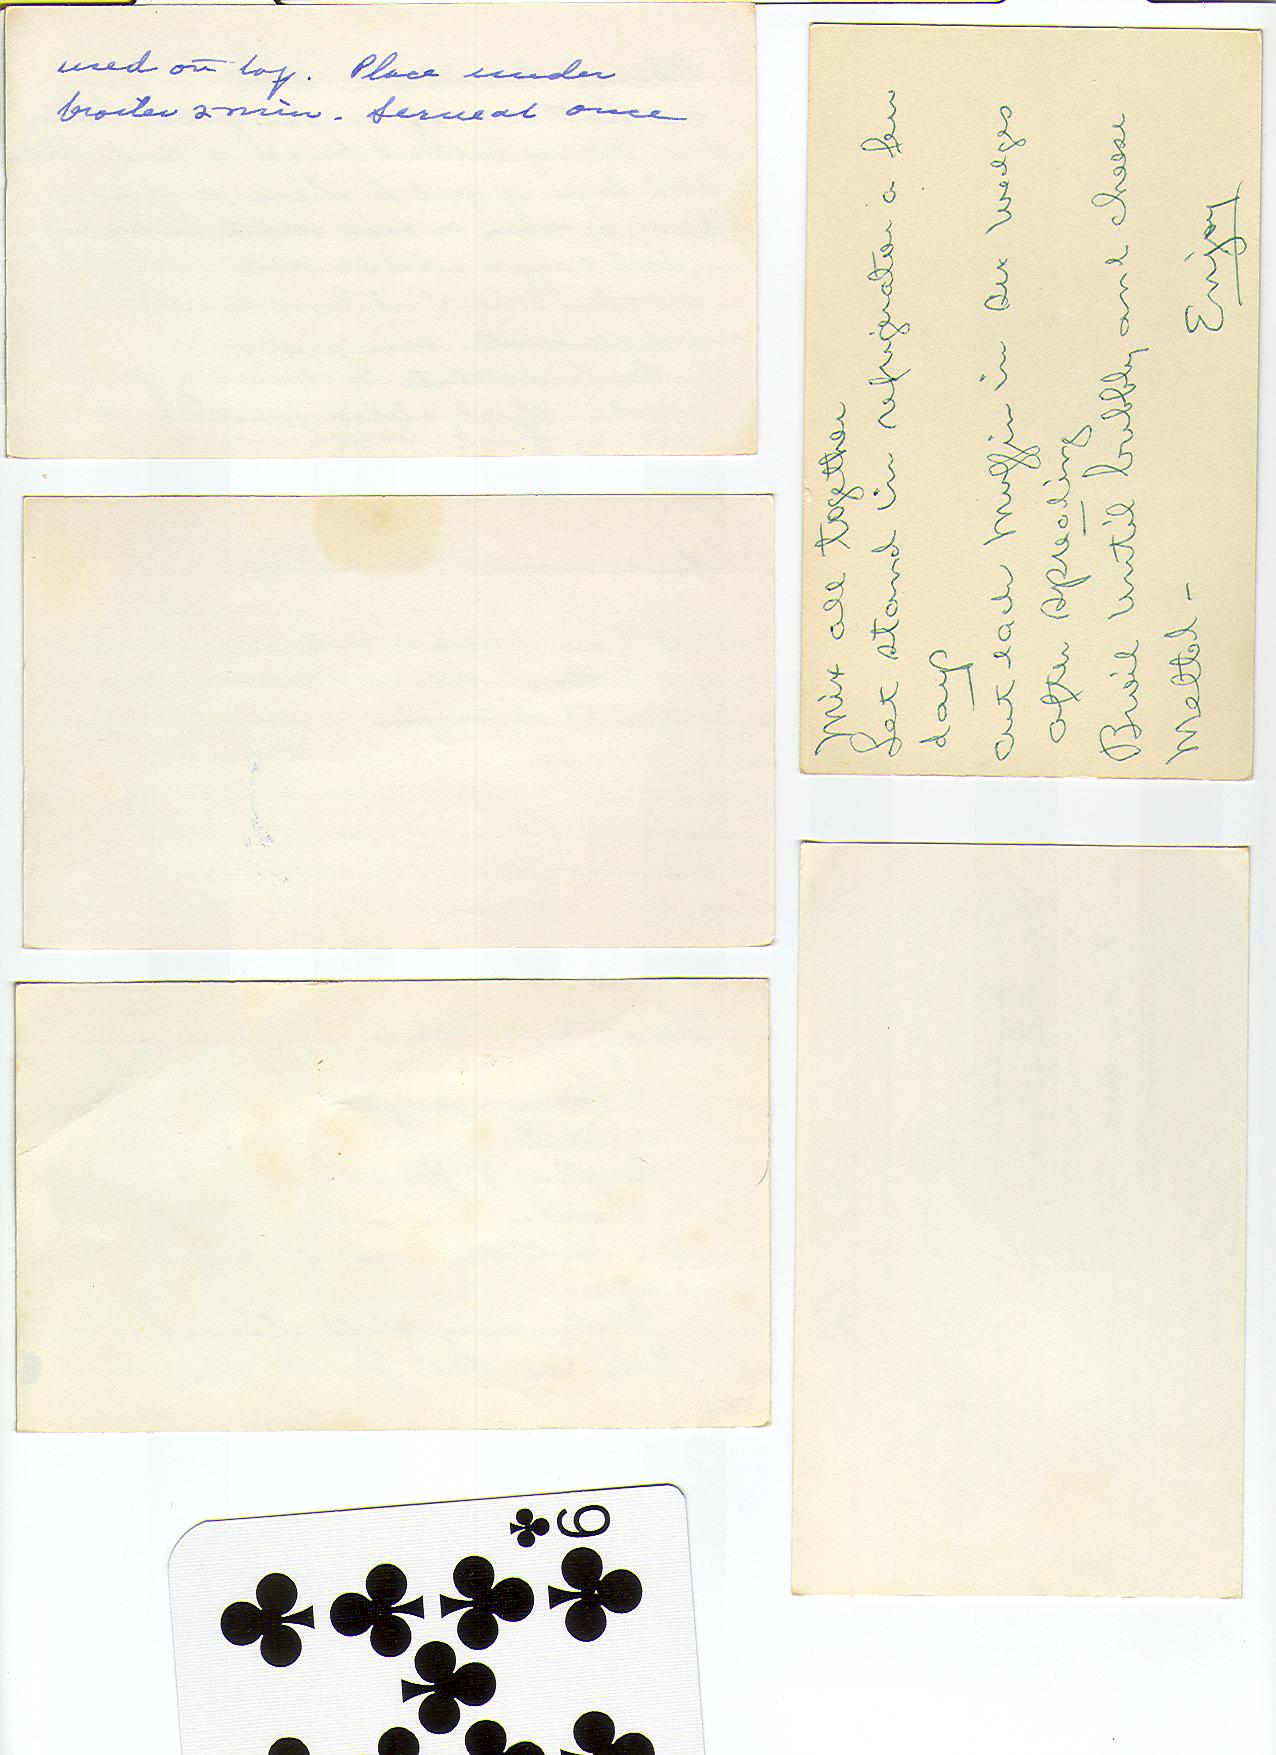 used on top. Place under
broiler 2 min. Serve at once
Mix all together
Let stand in refrigerator a few
days
Cut each muffin in six wedges
after spreading
Broil until bubbly and cheese
melted -
Enjoy
9